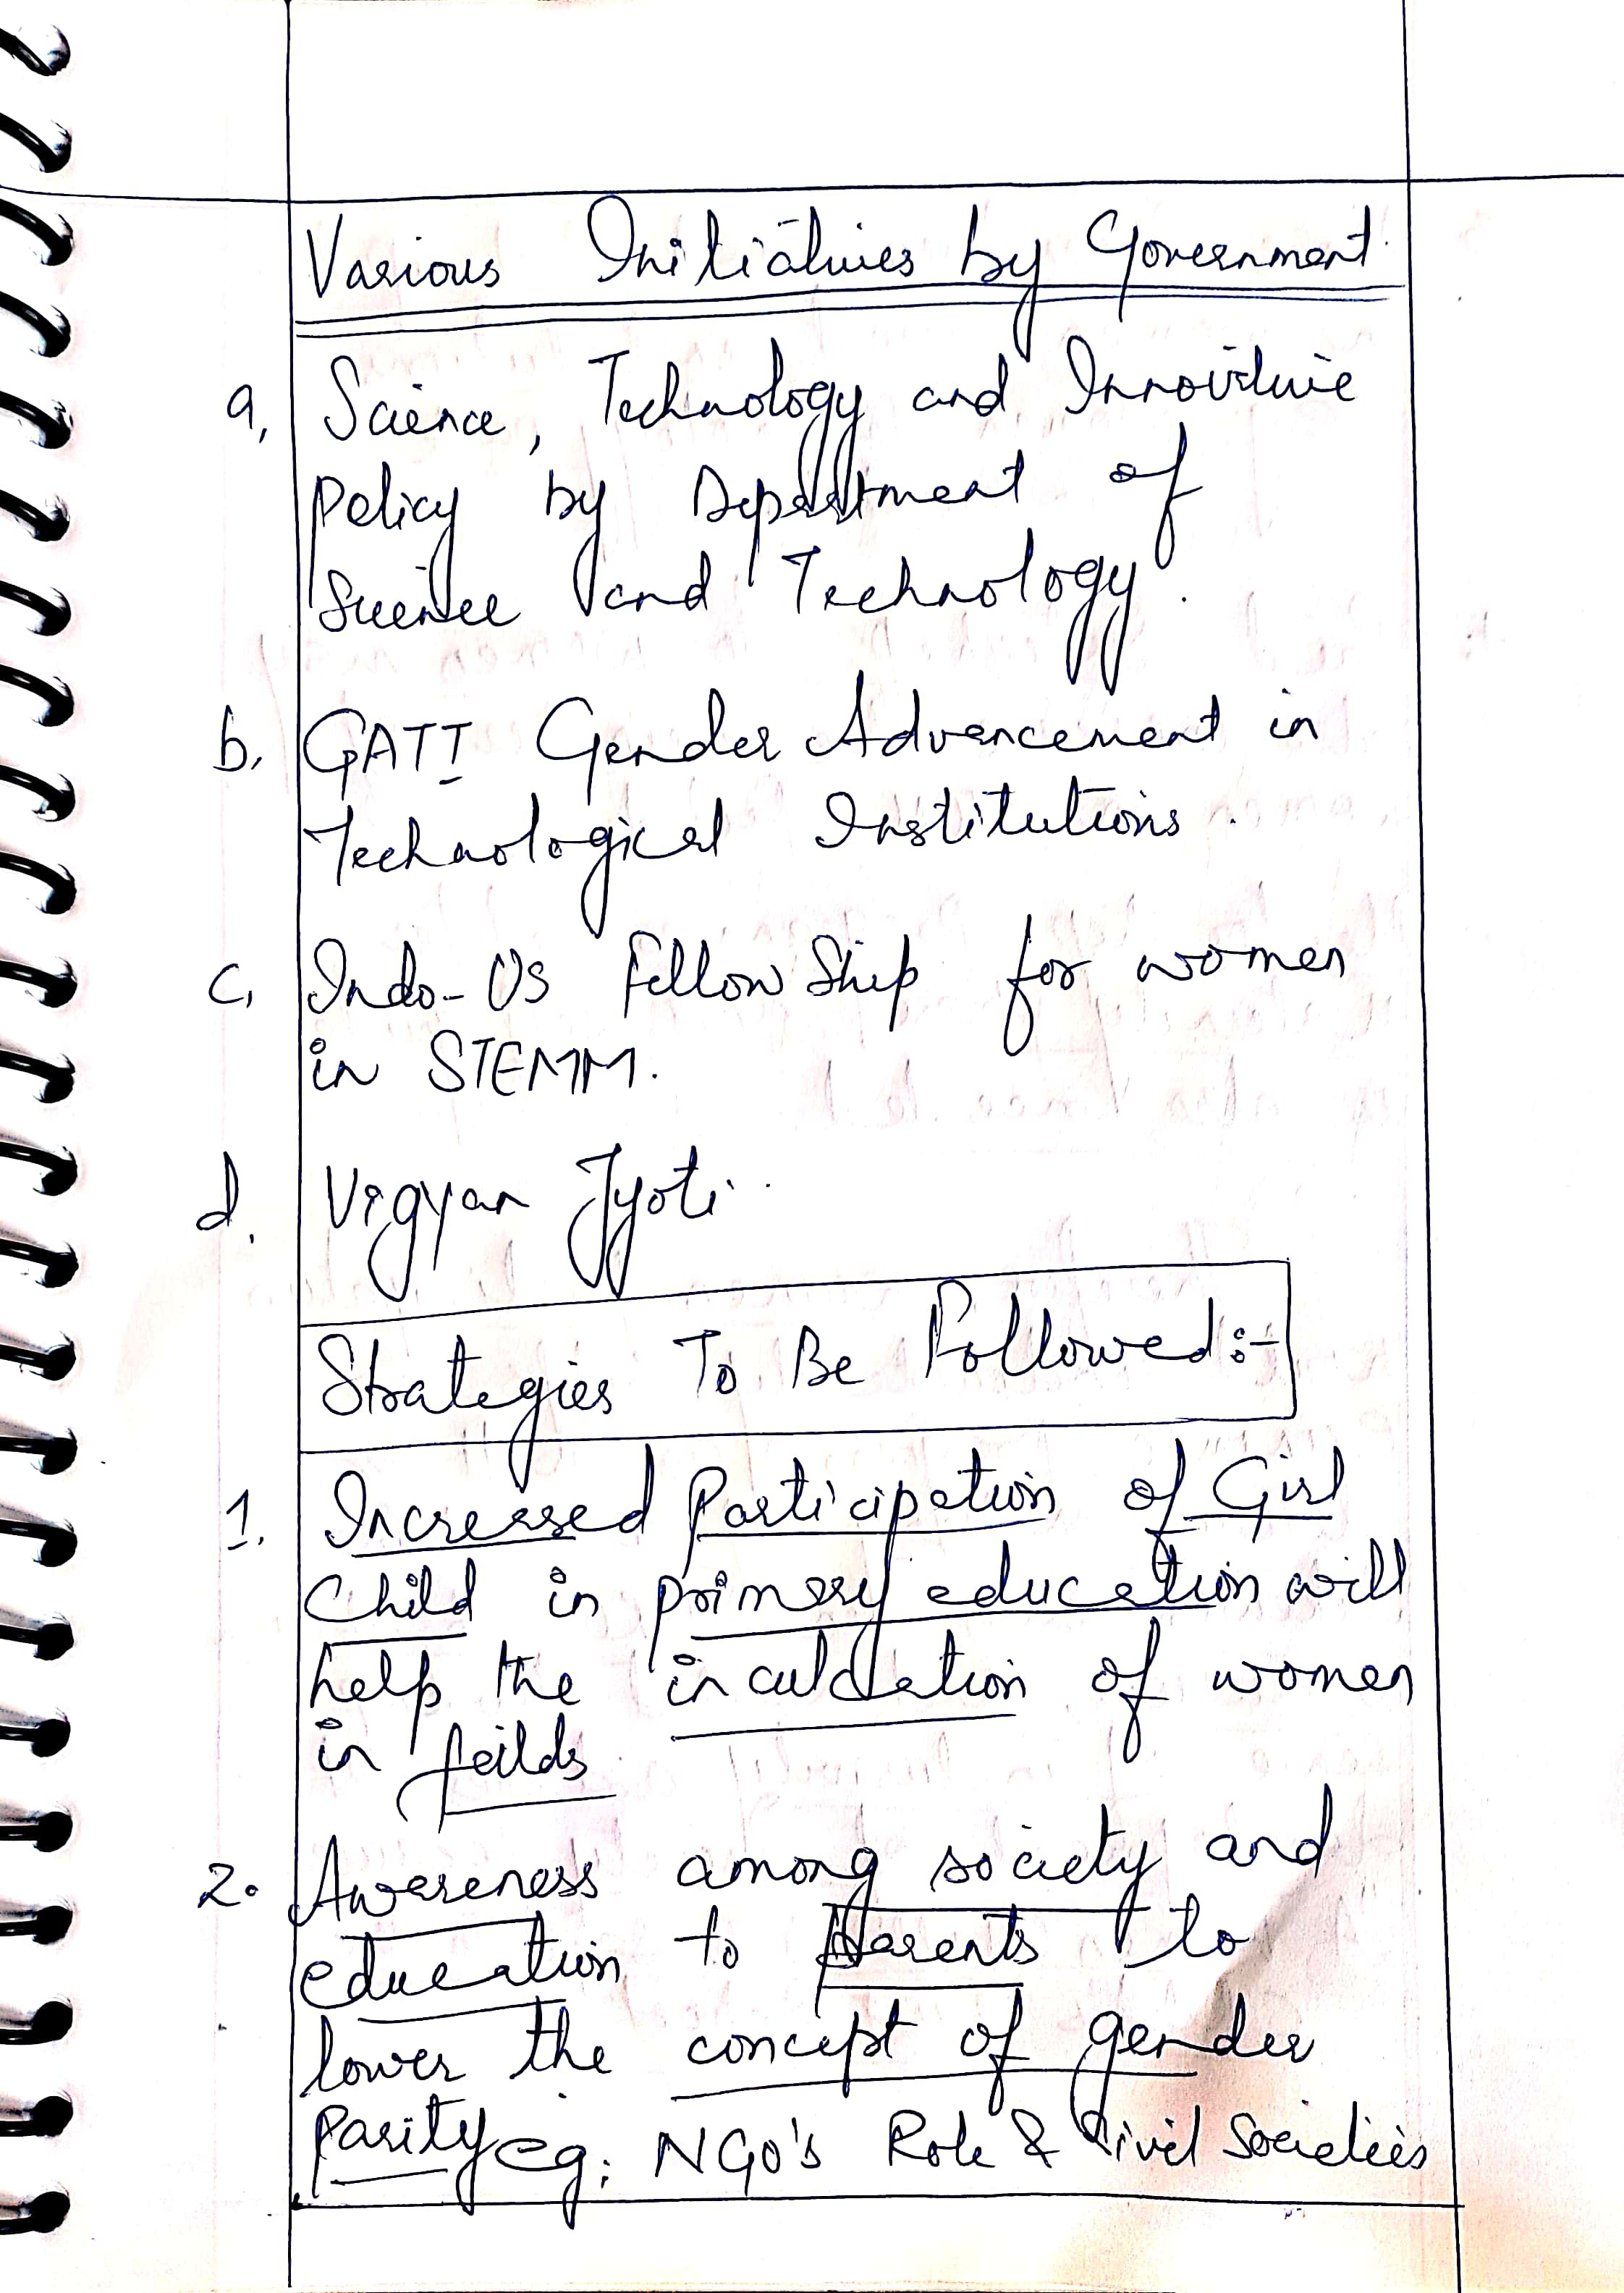 Various Initiatives by Government.
a, Science, Technology and Innovitive
Policy by Department of
Science and Technology.
b, GATI Gender Advancement in
Technological Institutions.
c, Indo-US Fellow Ship for women
in STEMM.
d. Vigyan Jyoti.
Strategies To Be Followed:-
1. Increased Participation of Girl
Child in primary education will
help the inculcation of women
in feilds
2. Awareness among society and
education to parents to
lower the concept of gender
Parity eg: NGO's Role & Civil Societies